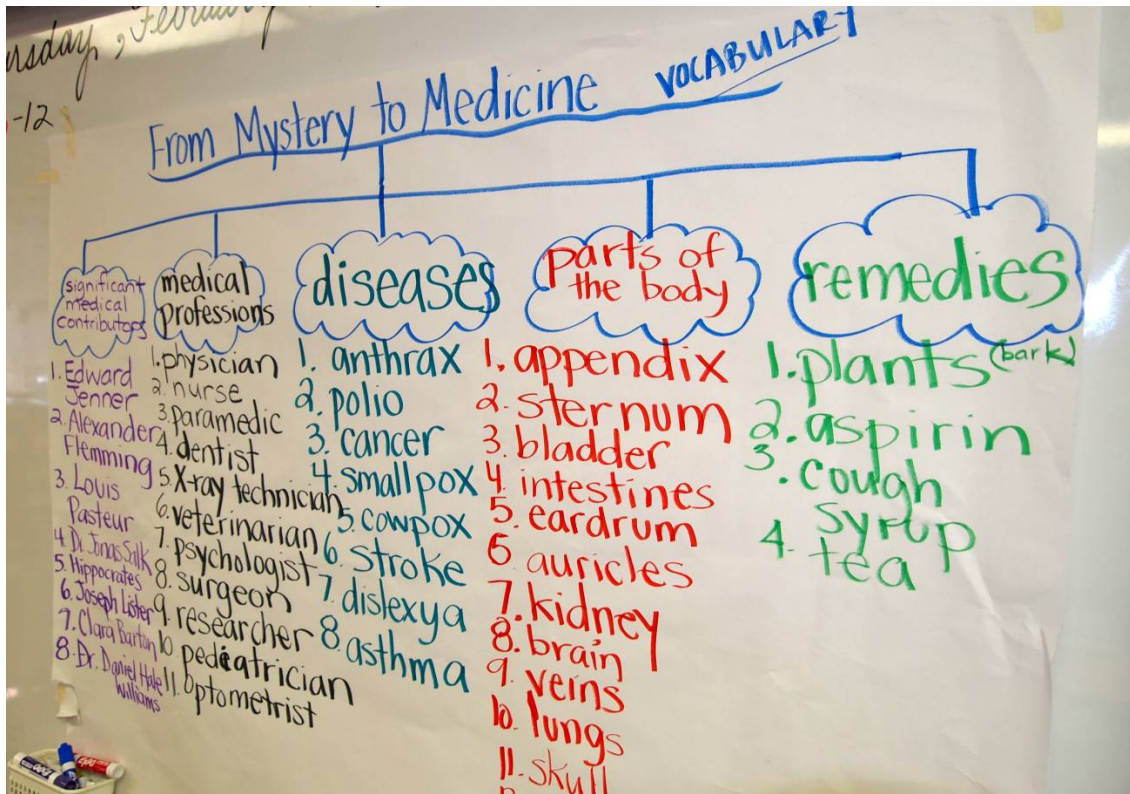 From Mystery to Medicine VOCABULARY
-12
significant
medical
contributors
1. Edward
Jenner
2. Alexander
Flemming
3. Louis
Pasteur
4 Dr. Jonas Salk
5. Hippocrates
6. Joseph Lister
7. Clara Barton
8. Dr. Daniel Hale
Williams
medical
professions
1. physician
2. nurse
3. paramedic
4. dentist
5. X-ray technician
6. veterinarian
7. psychologist
8. surgeon
9. researcher
10. pediatrician
11. optometrist
diseases
1. anthrax
2. polio
3. cancer
4. smallpox
5. cowpox
6. stroke
7. dislexya
8. asthma
parts of
the body
1. appendix
2. sternum
3. bladder
4. intestines
5. eardrum
6. auricles
7. kidney
8. brain
9. veins
10. lungs
11. skull
remedies
1. plants (bark)
2. aspirin
3. cough
syrup
4. tea